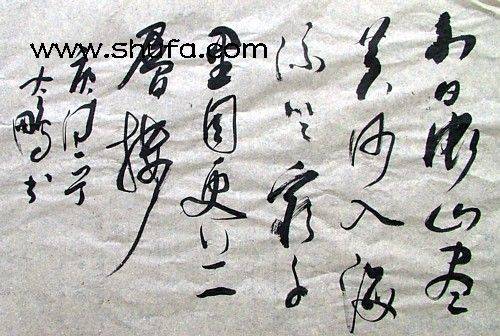 www.shufa.com
白日依山尽
黄河入海
流欲窮千
里目更上一
層樓
大鵬书